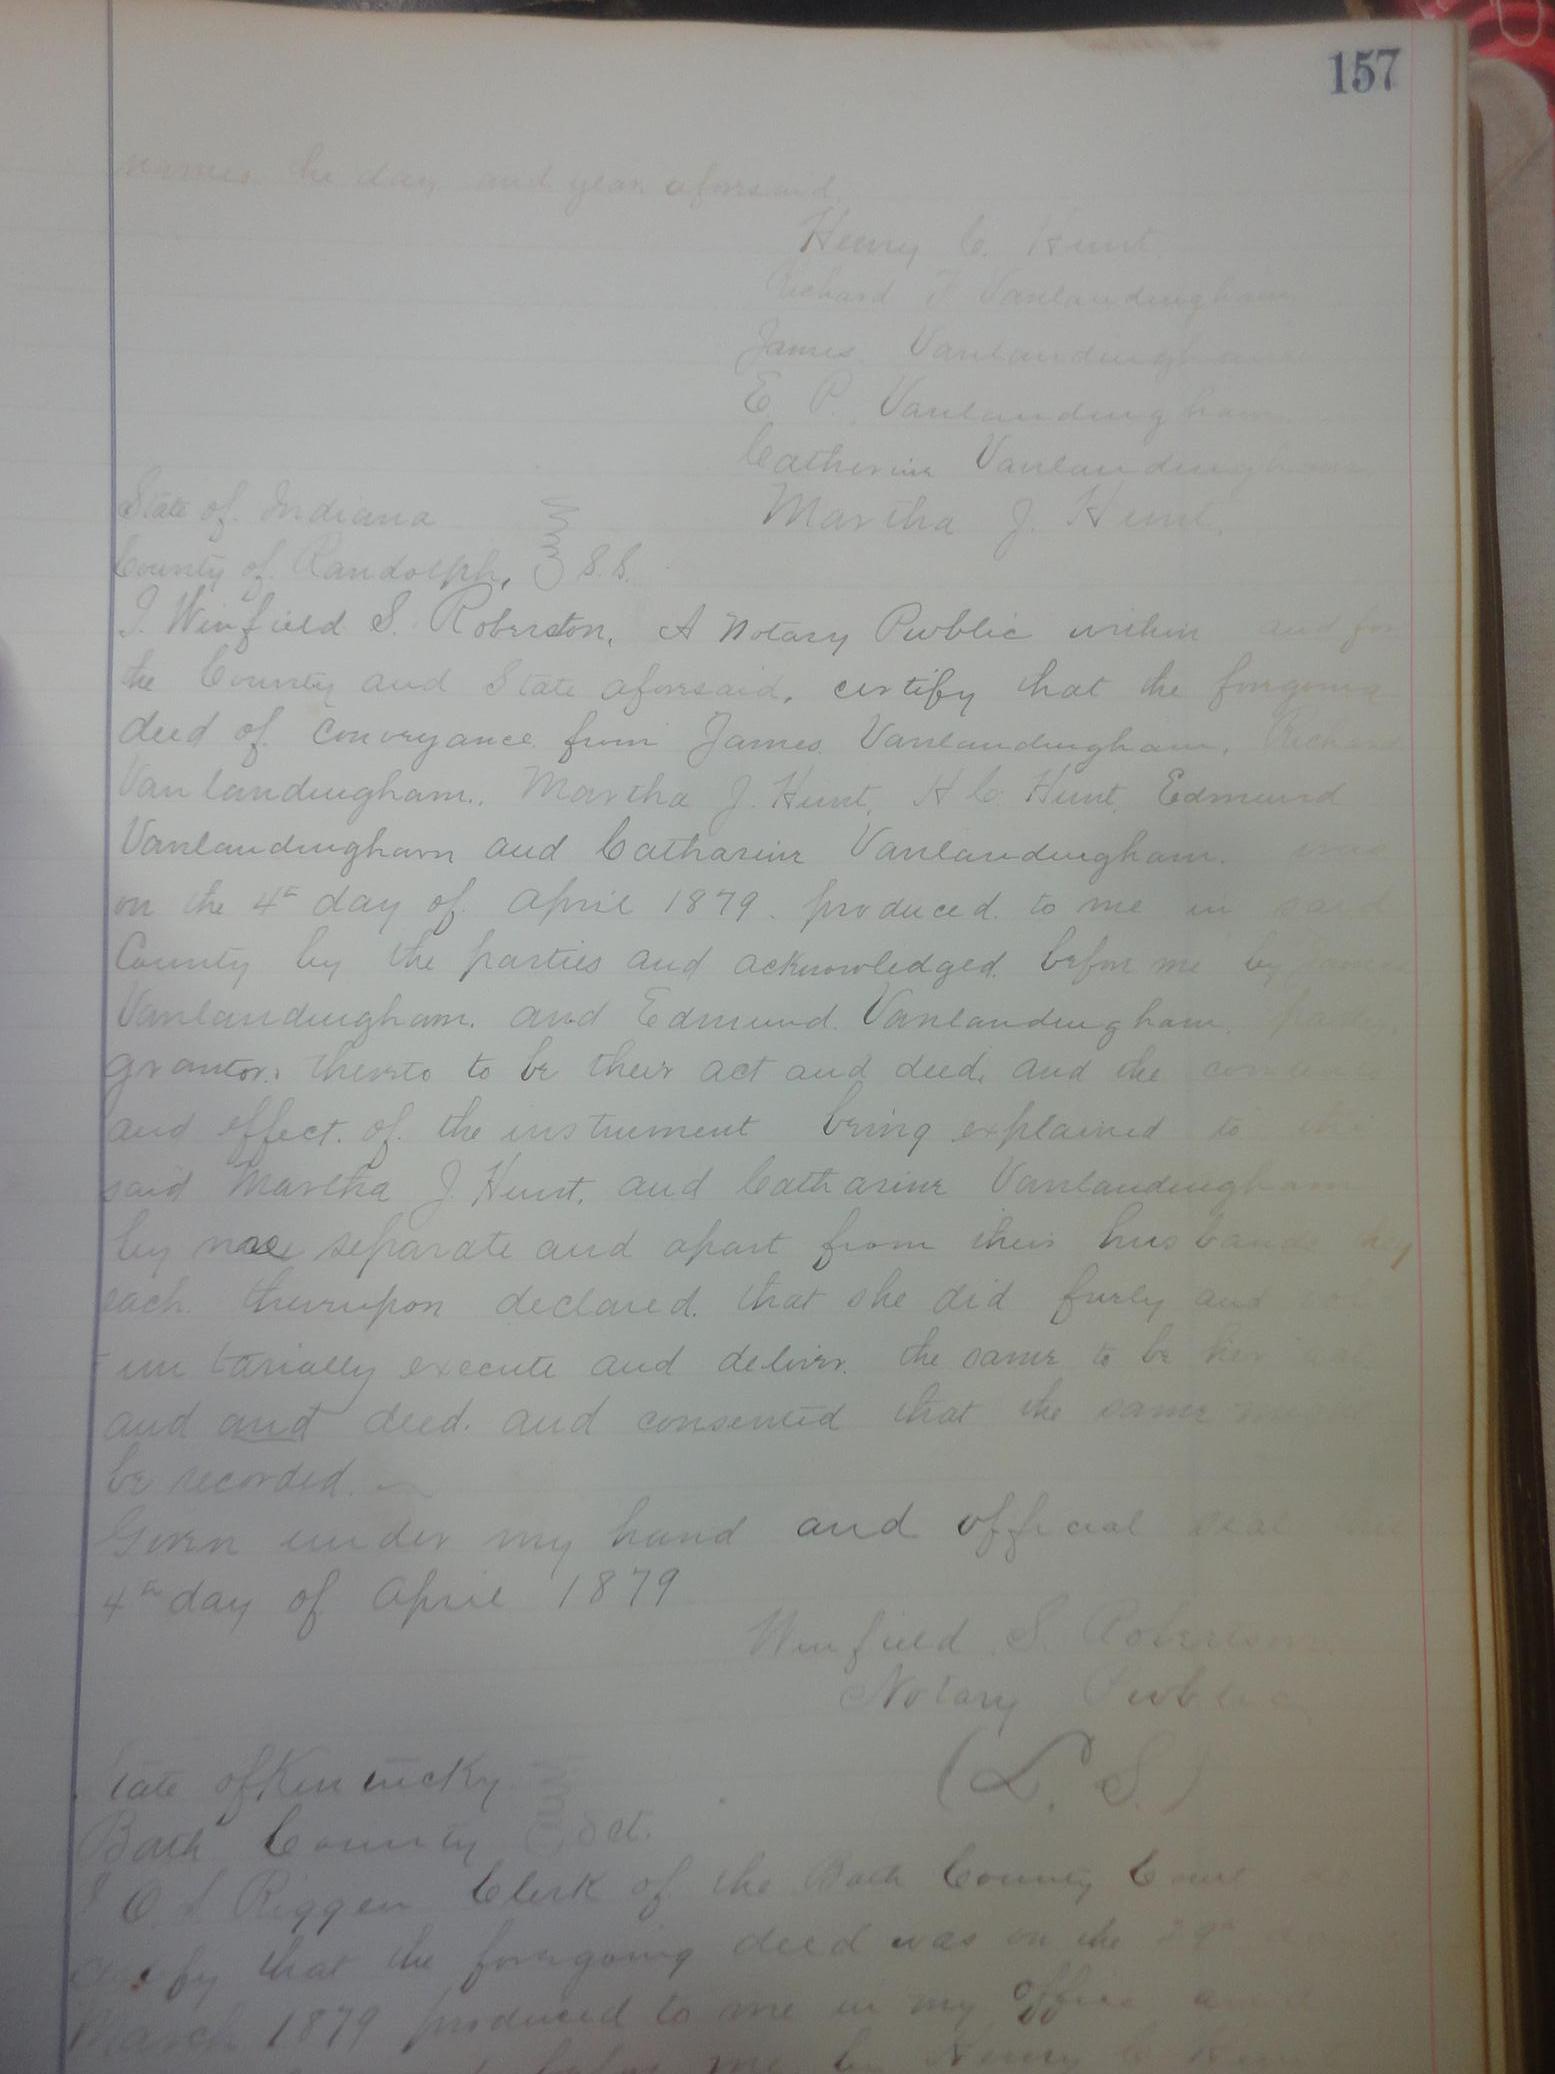 157
names the day and year aforesaid
Henry C. Hunt
Richard F Vanlandingham
James Vanlandingham
E. P. Vanlandingham
Catherine Vanlandingham
Martha J. Hunt.
State of Indiana
County of Randolph, S.S.
I. Winfield S. Roberston, A Notary Public within and for
the County and State aforesaid, certify that the foregoing
deed of conveyance from James Vanlandingham, Richard
Vanlandingham, Martha J. Hunt, H C Hunt, Edmund
Vanlandingham and Catharine Vanlandingham. was
on the 4th day of April 1879. produced to me in said
County by the parties and acknowledged before me by James
Vanlandingham. and Edmund Vanlandingham
grantors thereto to be their act and deed, and the contents
and effect of the instrument being explained to the
said Martha J Hunt, and Catharine Vanlandingham
by me separate and apart from their husbands they
each thereupon declared that she did freely and vol
-untarially execute and deliver the same to be her act
and and deed. and consented that the same might
be recorded.
Given under my hand and official seal this
4th day of April 1879
Winfield S. Robertson
Notary Public
(L. S.)
State of Kentucky
Bath County Sct.
I O. S Riggen Clerk of the Bath County Court do
certify that the foregoing deed was on the 29th day
March 1879 produced to me in my office and
before me by Henry C Hunt